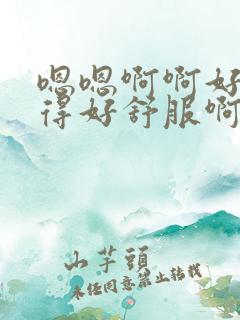 嗯嗯啊啊好
得好舒服啊
山芋頭
未经同意禁止转载